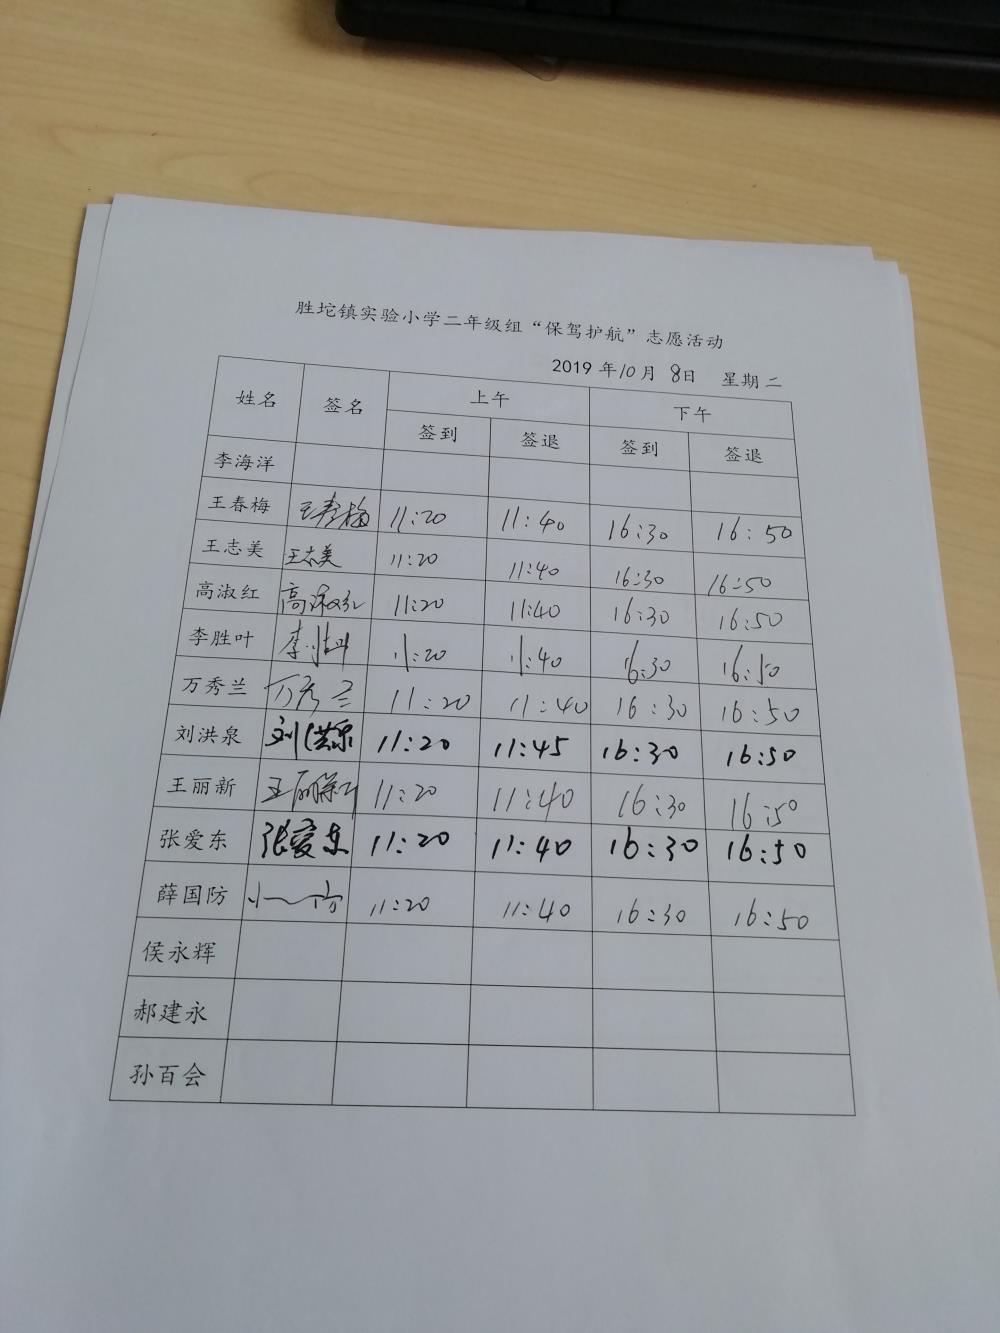 胜坨镇实验小学二年级组“保驾护航”志愿活动
2019 年10月 8日 星期二
姓名 签名 上午 下午
签到 签退 签到 签退
李海洋
王春梅 王春梅 11:20 11:40 16:30 16:50
王志美 王志美 11:20 11:40 16:30 16:50
高淑红 高淑红 11:20 11:40 16:30 16:50
李胜叶 李胜叶 11:20 11:40 16:30 16:50
万秀兰 万秀兰 11:20 11:40 16:30 16:50
刘洪泉 刘洪泉 11:20 11:45 16:30 16:50
王丽新 王丽新 11:20 11:40 16:30 16:50
张爱东 张爱东 11:20 11:40 16:30 16:50
薛国防 11:20 11:40 16:30 16:50
侯永辉
郝建永
孙百会